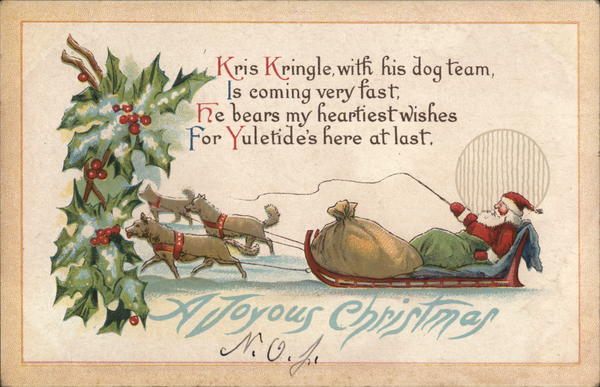 Kris Kringle, with his dog team,
Is coming very fast,
He bears my heartiest wishes
For Yuletide's here at last.
A Joyous Christmas
N. O. J.